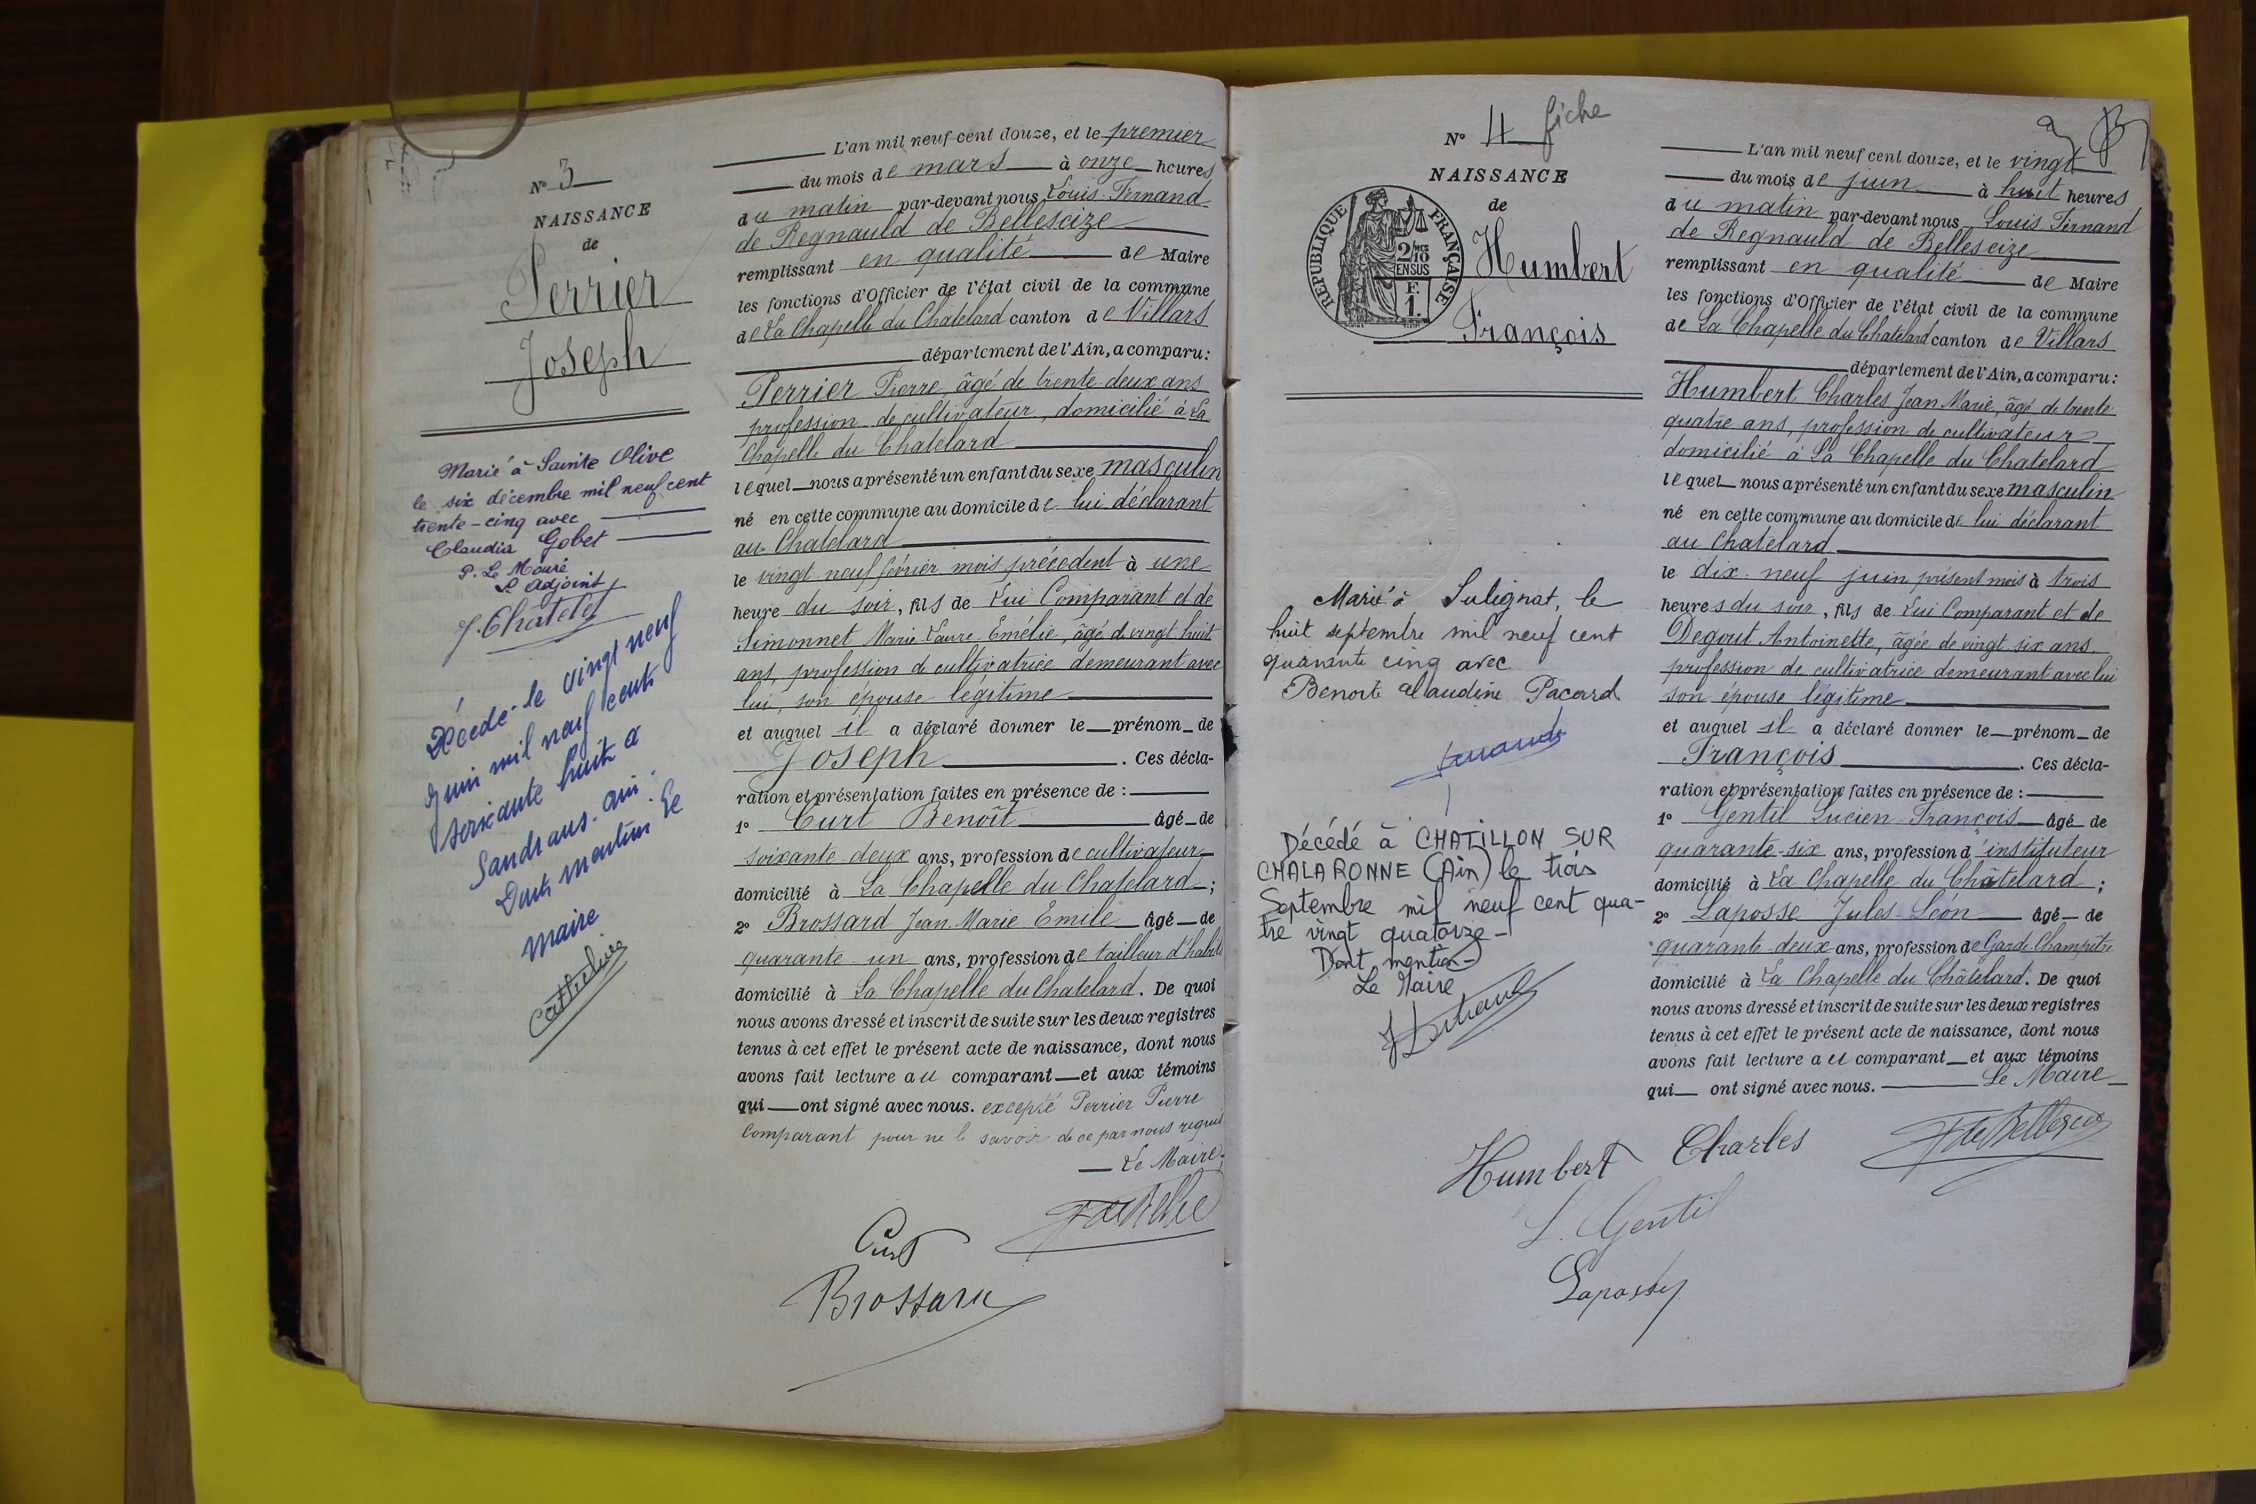 N° 3
NAISSANCE
de
Perrier
Joseph
Marié à Sainte Olive
le six décembre mil neuf cent
trente-cinq avec
Claudia Gobet
P. Le Maire
L'adjoint
J. Chatelet
Décédé le vingt neuf
Juin mil neuf cent
soixante huit à
Sandrans. Ain.
Dont mention Le
Maire
L'an mil neuf cent douze, et le premier
du mois de mars à onze heures
du matin par-devant nous Louis Fernand
de Regnauld de Bellescize
remplissant en qualité de Maire
les fonctions d'Officier de l'état civil de la commune
de La Chapelle du Chatelard canton de Villars
département de l'Ain, a comparu:
Perrier Pierre âgé de trente deux ans
profession de cultivateur, domicilié à La
Chapelle du Chatelard
lequel nous a présenté un enfant du sexe masculin
né en cette commune au domicile de lui déclarant
au Chatelard
le vingt neuf février mois précédent à une
heure du soir, fils de Lui Comparant et de
Simonnet Marie Laure Emélie, âgé de vingt huit
ans, profession de cultivatrice demeurant avec
lui, son épouse légitime
et auquel il a déclaré donner le prénom de
Joseph. Ces décla-
ration et présentation faites en présence de :
1° Curt Benoît âgé de
soixante deux ans, profession de cultivateur
domicilié à La Chapelle du Chatelard ;
2° Brossard Jean Marie Emile âgé de
quarante un ans, profession de tailleur d'habits
domicilié à La Chapelle du Chatelard. De quoi
nous avons dressé et inscrit de suite sur les deux registres
tenus à cet effet le présent acte de naissance, dont nous
avons fait lecture au comparant et aux témoins
qui ont signé avec nous. excepté Perrier Pierre
Comparant pour ne le savoir de ce par nous requis
Le Maire,
Curt
Brossard
N° 4 fiche
NAISSANCE
de
Humbert
François
REPUBLIQUE FRANÇAISE
2/10 EN SUS
F. 1.
Marié à Sulignat, le
huit septembre mil neuf cent
quarante cinq avec
Benoite Claudine Pacard
Décédé à CHATILLON SUR
CHALARONNE (Ain) le trois
Septembre mil neuf cent qua-
tre vingt quatorze -
Dont mention -
Le Maire
L'an mil neuf cent douze, et le vingt
du mois de juin à huit heures
du matin par-devant nous Louis Fernand
de Regnauld de Bellescize
remplissant en qualité de Maire
les fonctions d'Officier de l'état civil de la commune
de La Chapelle du Chatelard canton de Villars
département de l'Ain, a comparu:
Humbert Charles Jean Marie, âgé de trente
quatre ans, profession de cultivateur
domicilié à La Chapelle du Chatelard
lequel nous a présenté un enfant du sexe masculin
né en cette commune au domicile de lui déclarant
au Chatelard
le dix-neuf juin présent mois à trois
heures du soir, fils de Lui Comparant et de
Degout Antoinette, âgée de vingt six ans
profession de cultivatrice demeurant avec lui
son épouse légitime
et auquel il a déclaré donner le prénom de
François. Ces décla-
ration et présentation faites en présence de :
1° Gentil Lucien François âgé de
quarante-six ans, profession d'instituteur
domicilié à La Chapelle du Châtelard ;
2° Laposse Jules Léon âgé de
quarante-deux ans, profession de Garde Champêtre
domicilié à La Chapelle du Châtelard. De quoi
nous avons dressé et inscrit de suite sur les deux registres
tenus à cet effet le présent acte de naissance, dont nous
avons fait lecture au comparant et aux témoins
qui ont signé avec nous. Le Maire
Humbert Charles
F de Bellescize
L. Gentil
Laposse